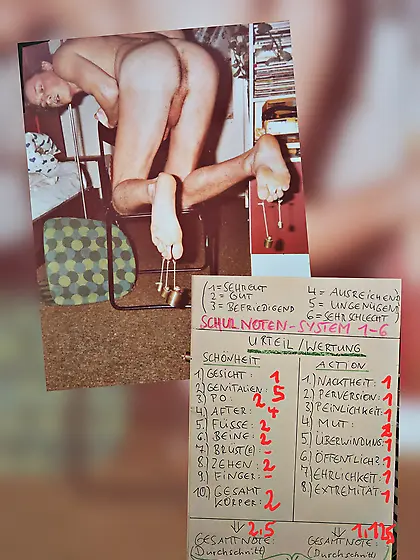 (1=SEHR GUT 4= AUSREICHEND
2= GUT 5= UNGENÜGEND
3= BEFRIEDIGEND 6= SEHR SCHLECHT)
SCHULNOTEN-SYSTEM 1-6
URTEIL/WERTUNG
SCHÖNHEIT
1) GESICHT: 1
2) GENITALIEN: 5
3) PO: 2
4.) AFTER: 4
5) FÜSSE: 2
6.) BEINE: 2
7.) BRÜST(E) –
8.) ZEHEN: 2
9.) FINGER: –
10.) GESAMT
KÖRPER: 2
⇓ 2,5
GESAMTNOTE:
(Durchschnitt)
ACTION
1.) NACKTHEIT: 1
2.) PERVERSION: 1
3.) PEINLICHKEIT: 1
4.) MUT:
5.) ÜBERWINDUNG: 1
6.) ÖFFENTLICH?: 1
7.) EHRLICHKEIT: 1
8.) EXTREMITÄT: 1
⇓ 1,125
GESAMTNOTE:
(Durchschnitt)